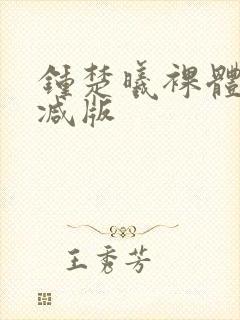 鍾楚曦裸體
减版
王秀芳